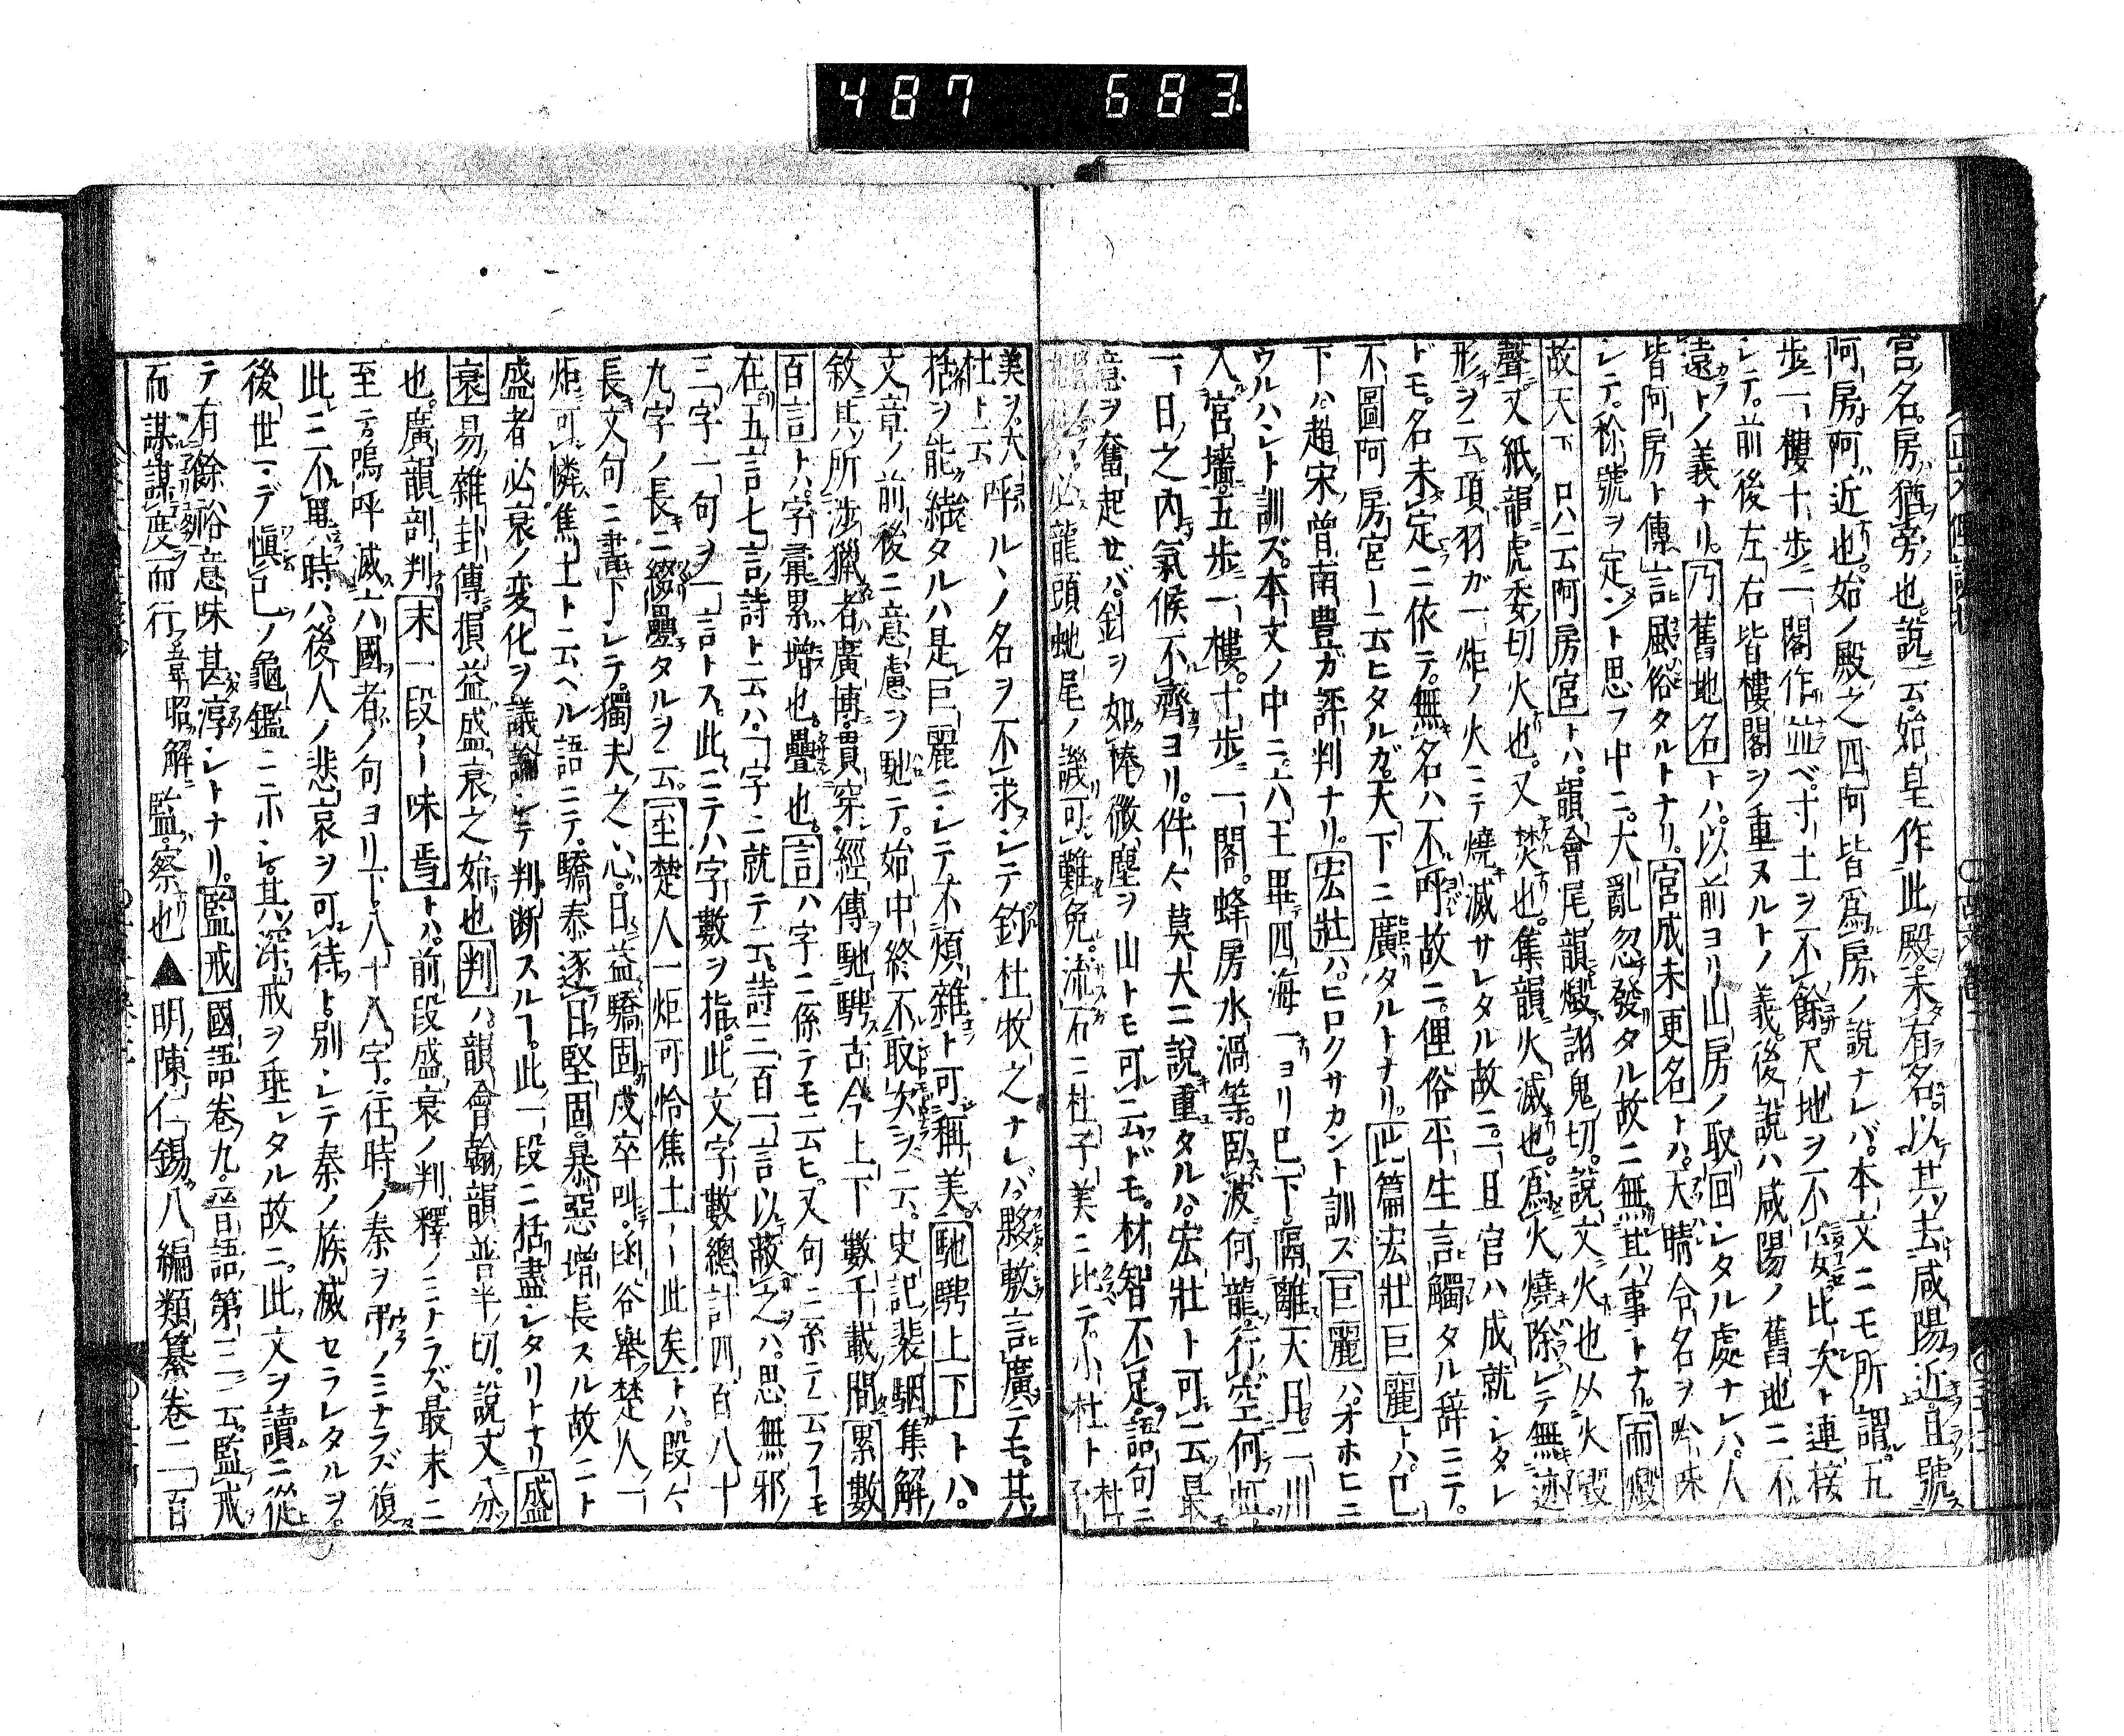 487 683
宮ノ名。房猶旁也。説ニ云始皇作此殿未有名以其去咸陽近且號
阿房。阿ハ近也。始ノ殿之四阿皆爲房ノ説ナレバ。本文ニモ所謂五
歩一樓十歩一閣作並ベ。寸土ヲ不餘尺地ヲ不 比次ト連接
シテ。前後左右皆樓閣ヲ重ヌルトノ義。後説ハ咸陽ノ舊地ニ不
遠トノ義ナリ。乃舊地名トハ。以前ヨリ山房ノ取回シタル處ナレハ。人
皆阿房ト傳言風俗タルトナリ。宮成未更名トハ。天晴令名ヲ吟味
シテ。稱號ヲ定ント思フ中ニ。大亂忽發タル故ニ無其事トナル。而燬
故天下只云阿房宮トハ。韻會尾韻燬詡鬼切。説文火也从火毀
聲又紙韻虎委切火也。又焚也。集韻火滅也。爲火燒除シテ無迹
形ヲ云。項羽ガ一炬ノ火ニテ燒滅サレタル故ニ。且宮ハ成就シタレ
ドモ。名未定ニ依テ。無名ハ不呼故ニ。俚俗平生言觸タル辞ニテ。
不圖阿房宮ト云ヒタルガ。天下ニ廣タルトナリ。此篇宏壯巨麗トハ。已
下ハ趙宋ノ曾南豊ガ評判ナリ。宏壯ハ。ヒロクサカント訓ズ巨麗ハ。オホヒニ
ウルハシト訓ズ。本文ノ中ニ。六王畢四海一ヨリ已下。隔離天日。二川
入宮墻。五歩一樓。十歩一閣。蜂房水渦等。臥波何龍。行空何虹。
一日之内氣候不齊ヨリ。件々莫大ニ説重タルハ。宏壯ト可云最
意ヲ奮起セバ。針ヲ如棒微塵ヲ山トモ可云ドモ。材智不足。語句ニ
必龍頭蛇尾ノ譏可難免。流石ニ杜子美ニ比テ。小杜ト
美ヲ大杜ト云呼ルノ名ヲ不求シテ釣杜牧之ナレバ。夥敷言廣テモ。其
括ヲ能結タルハ是巨麗ニシテ不煩雜ト可稱美。馳騁上下トハ。
文章ノ前後ニ意慮ヲ馳テ。始中終不取矢ヲ云。史記裴駰集解
敘其所渉獵者廣博。貫穿經傳馳騁古今上下數千載間。累數
百言トハ。字彙累増也。疊也。言ハ字ニ係テモ云ヒ。又句ニ系テ云フモ
在五言七言詩ト云ハ。字ニ就テ云。詩三百一言以蔽之ハ。思無邪ノ
三字一句ヲ一言トス。此ニテハ字數ヲ指ス。此文字數總計四百八十
九字ノ長ニ綴疊タルヲ云。至楚人一炬可怜焦土ー此矣トハ。段々
長文句ニ書下シテ。獨夫之心。日益驕固戍卒叫。函谷舉。楚人一
炬可憐焦土ト云ヘル語ニテ。驕泰逐日堅固。暴惡増長スル故ニト
盛者必衰ノ変化ヲ議論シテ判断スル。此一段ニ括盡シタリトナリ盛
衰易雜卦傳損益盛衰之始也判ハ。韻會翰韻普半切。説文分
也。廣韻剖判末一段ー味焉トハ。前段盛衰ノ判釋ノミナラズ最末ニ
至テ嗚呼滅六國者ノ句ヨリ下。八十八字。往時ノ秦ヲ弔ノミナラズ復
此三不黒時ハ。後人ノ悲哀ヲ可待ト。別シテ秦ノ族滅セラレタルヲ。
後世マデ愼已ノ龜鑑ニ示シ。其深戒ヲ垂レタル故ニ。此文ヲ讀ニ從
テ有餘裕意味甚淳シトナリ。監戒國語卷九。晉語第三ニ云。監戒
而謀謀度而行 韋昭解監。察也▲明陳仁錫八編類纂卷二百